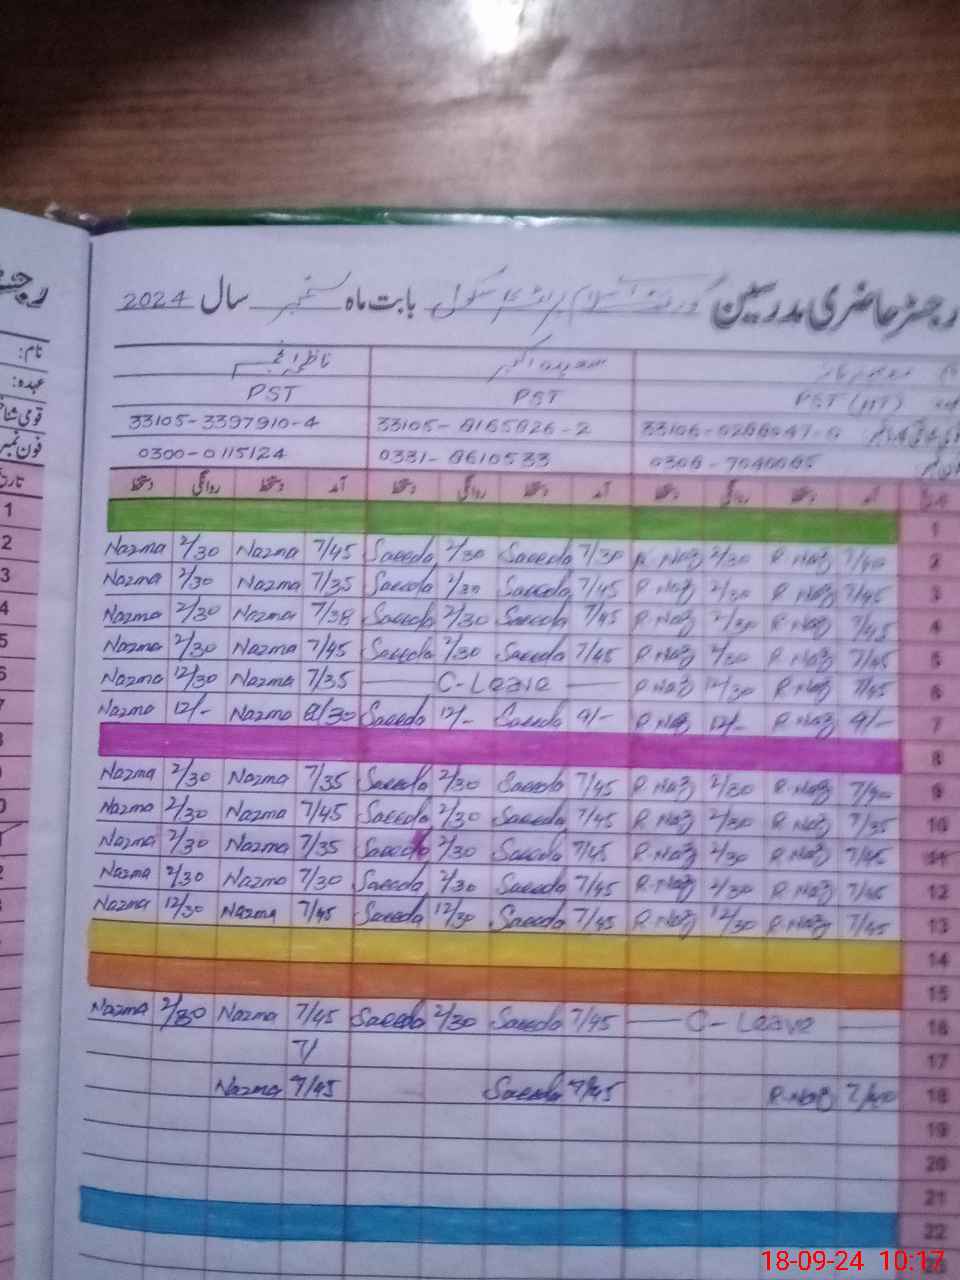 رجسٹر حاضری مدرسین گورنمنٹ اسلام سکول بابت ماہ ستمبر سال 2024
ناظمہ انجم
PST PST PST
33105-3397910-4
0300-0115124 0331-8610533
دستخط روانگی دستخط آمد دستخط روانگی دستخط آمد دستخط روانگی دستخط آمد
1
Nazma 2/30 Nazma 7/45 Saeeda 2/30 Saeeda 7/30 R.Naz 2/30 R.Naz 7/40 2
Nazma 2/30 Nazma 7/35 Saeeda 2/30 Saeeda 7/45 R.Naz 2/30 R.Naz 7/45 3
Nazma 2/30 Nazma 7/38 Saeeda 2/30 Saeeda 7/45 R.Naz 2/30 R.Naz 7/45 4
Nazma 2/30 Nazma 7/45 Saeeda 2/30 Saeeda 7/45 R.Naz 2/30 R.Naz 7/45 5
Nazma 12/30 Nazma 7/35 C-Leave R.Naz 12/30 R.Naz 7/45 6
Nazma 12/- Nazma 8/30 Saeeda 12/- Saeeda 9/- R.Naz 12/- R.Naz 9/- 7
8
Nazma 2/30 Nazma 7/35 Saeeda 2/30 Saeeda 7/45 R.Naz 2/30 R.Naz 7/40 9
Nazma 2/30 Nazma 7/45 Saeeda 2/30 Saeeda 7/45 R.Naz 2/30 R.Naz 7/35 10
Nazma 2/30 Nazma 7/35 Saeeda 2/30 Saeeda 7/45 R.Naz 2/30 R.Naz 7/45 11
Nazma 2/30 Nazma 7/30 Saeeda 2/30 Saeeda 7/45 R.Naz 2/30 R.Naz 7/45 12
Nazma 12/30 Nazma 7/45 Saeeda 12/30 Saeeda 7/45 R.Naz 12/30 R.Naz 7/45 13
14
15
Nazma 2/30 Nazma 7/45 Saeeda 2/30 Saeeda 7/45 C-Leave 16
7/ 17
Nazma 7/45 Saeeda 7/45 R.Naz 7/40 18
19
20
21
22
23
رجسٹر
نام:
عہدہ:
قومی شناختی
فون نمبر
تاریخ
1
2
3
4
5
6
7
18-09-24 10:17